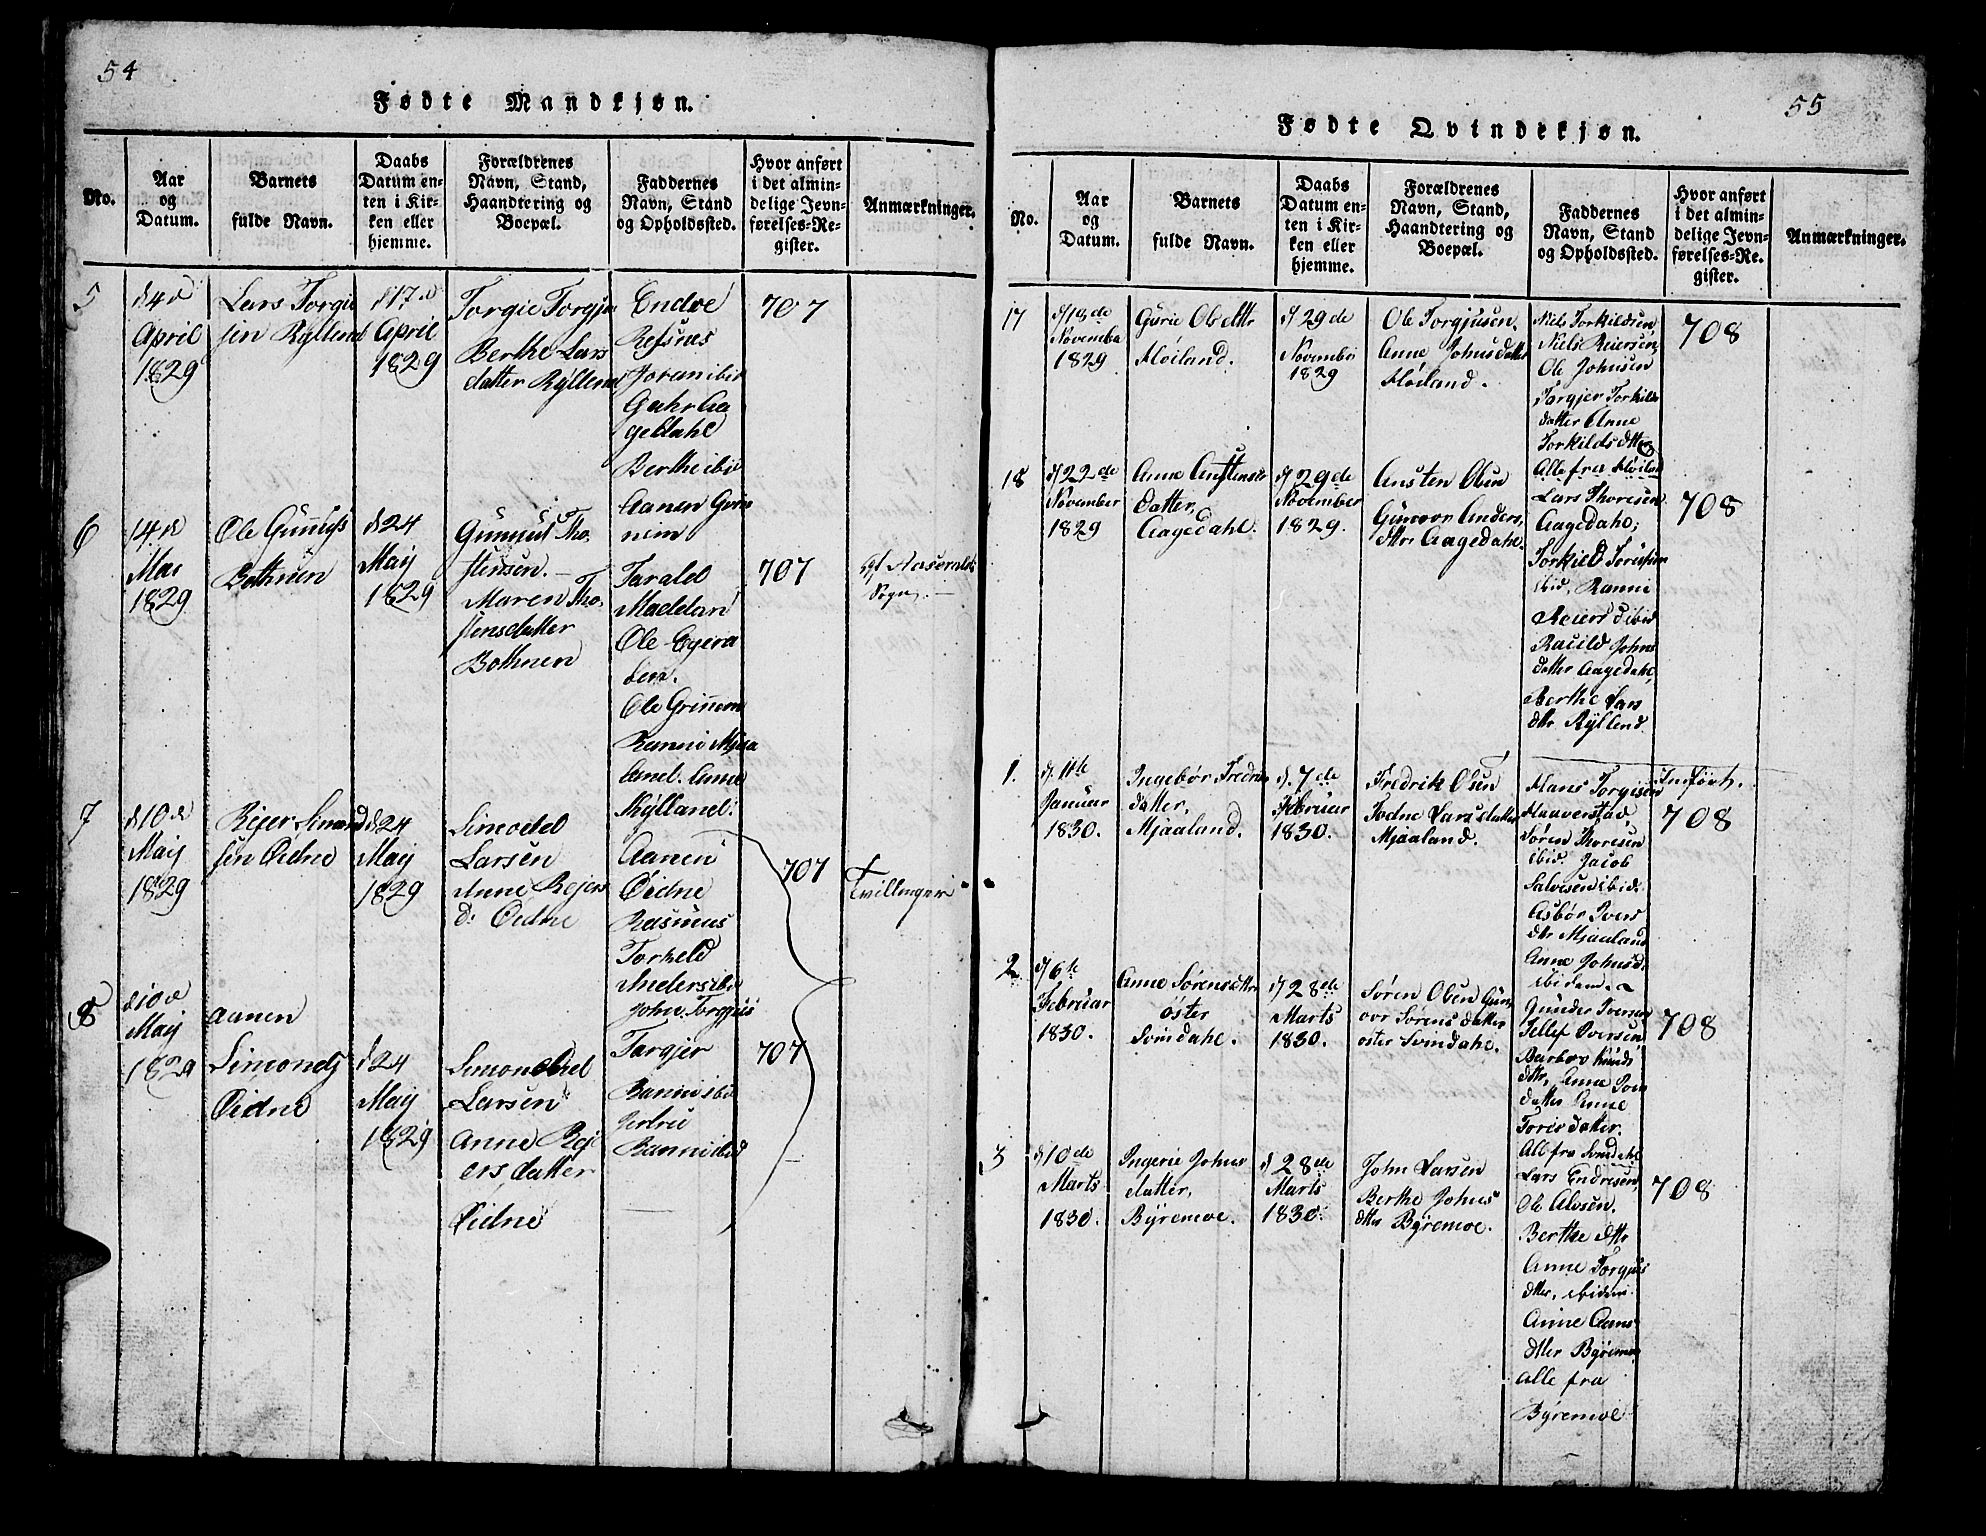 54
Fødte Mandkjøn.
No.
Aar
og
Datum.
Barnets
fulde Navn.
Daabs
Datum en-
ten i Kir-
ken eller
hjemme.
Forældrenes
Navn, Stand,
Haandtering og
Boepæl.
Faddernes
Navn, Stand
og Opholdssted.
Hvor anført
i det almin-
delige Jevn-
førelses-Re-
gister.
Anmærkninger.
5
d 4d
April
1829
Lars Torgie
sen Rylland
d 17d
April
1829
Torgie Torgju
Berthe Lars
datter Rÿlland
Endre
Refsnes
Aagedahl
Berthe ibid
Aanen
707
6
14de
Mai
1829
Ole
Bothnen
d 24
Maij
1829
Gunnuf Tho-
stensen.
Maren Tho-
stensdatter
Bothnen
Tarald
Ole
Ole
Rÿlland.
707
Sogn.
7
d 10de
Maij
1829
Rejer Simond
sen Øidne
d 24
Maij
1829
Simodd
Larsen
Anne Rejers
d: Øidne
Aanen
Øidne
Rasmus
Torkeld
Anders ibid
John Torgjus
707
Tvillinger
8
d 10de
Maij
1829
Aanen
Simonds
Øidne
d 24
Maij
1829
Larsen
Anne Rej
ers datter
Øidne
Targjer
Rannei ibid
707
55
Fødte Qvindekjøn.
No.
Aar
og
Datum.
Barnets
fulde Navn.
Daabs
Datum en-
ten i Kir-
ken eller
hjemme.
Forældrenes
Navn, Stand,
Haandtering og
Boepæl.
Faddernes
Navn, Stand
og Opholdssted.
Hvor anført
i det almin-
delige Jevn-
førelses-Re-
gister.
Anmærkninger.
17
November
1829
Gurie Ole dttr
Høiland.
d 29de
November
1829
Ole Torgjusen.
Anne Johnsdatter
Høiland.
Niels Torkildsen,
Niels Reiersen,
Ole Johnsen
Targjer Torkilds
datter Anne
Torkilds dttr
Alle fra Høiland
708
18
d 22de
November
1829
Anne Austens
datter,
Aagedahl.
d 29de
November
1829.
Austen Olsen
Gunvor Anders
dttr Aagedahl.
Lars Thoresen
Aagedahl;
ibid, Rannei
Reiers d ibid
Raeild Johns
datter Aagedahl,
Berthe Lars
dttr Rÿlland.
708
1.
d. 11te
Januar
1830.
Ingebor Fredriks
datter,
Mjaaland.
d. 7de
Februar
1830.
Fredrik Olsen
Jødne Larsdatter
Mjaaland.
Hans Torgiesen
Haaverstad,
Søren Thoresen
ibid. Jacob
Salvesen ibid.
Asbør Ivers
dttr Mjaaland
Anne Johnsd.
ibidem.
Indført.
708
2
d 6te
Februar
1830.
Anne Sørensdttr
øster
Somdahl.
d 28de
Marts
1830.
Søren Olsen Gun-
vor Sørens datter
øster Somdahl.
Gunder Iversen
Tellef Iversen,
Barbro Knuds
dttr, Anne
datter Anne
Toris datter.
Alle fra Somdahl
708
3
d 10de
Marts
1830.
Ingerie Johns
datter,
Bÿremoe.
d 28de
Marts
1830.
John Larsen
Berthe Johns
dtter Bÿremoe.
Lars Endresen,
Ole Alvsen.
Berthe dttr
Anne Torgjus
dtter, ibidem.
Anne Aans
dtter Bÿremoe
alle fra
Bÿremoe
708